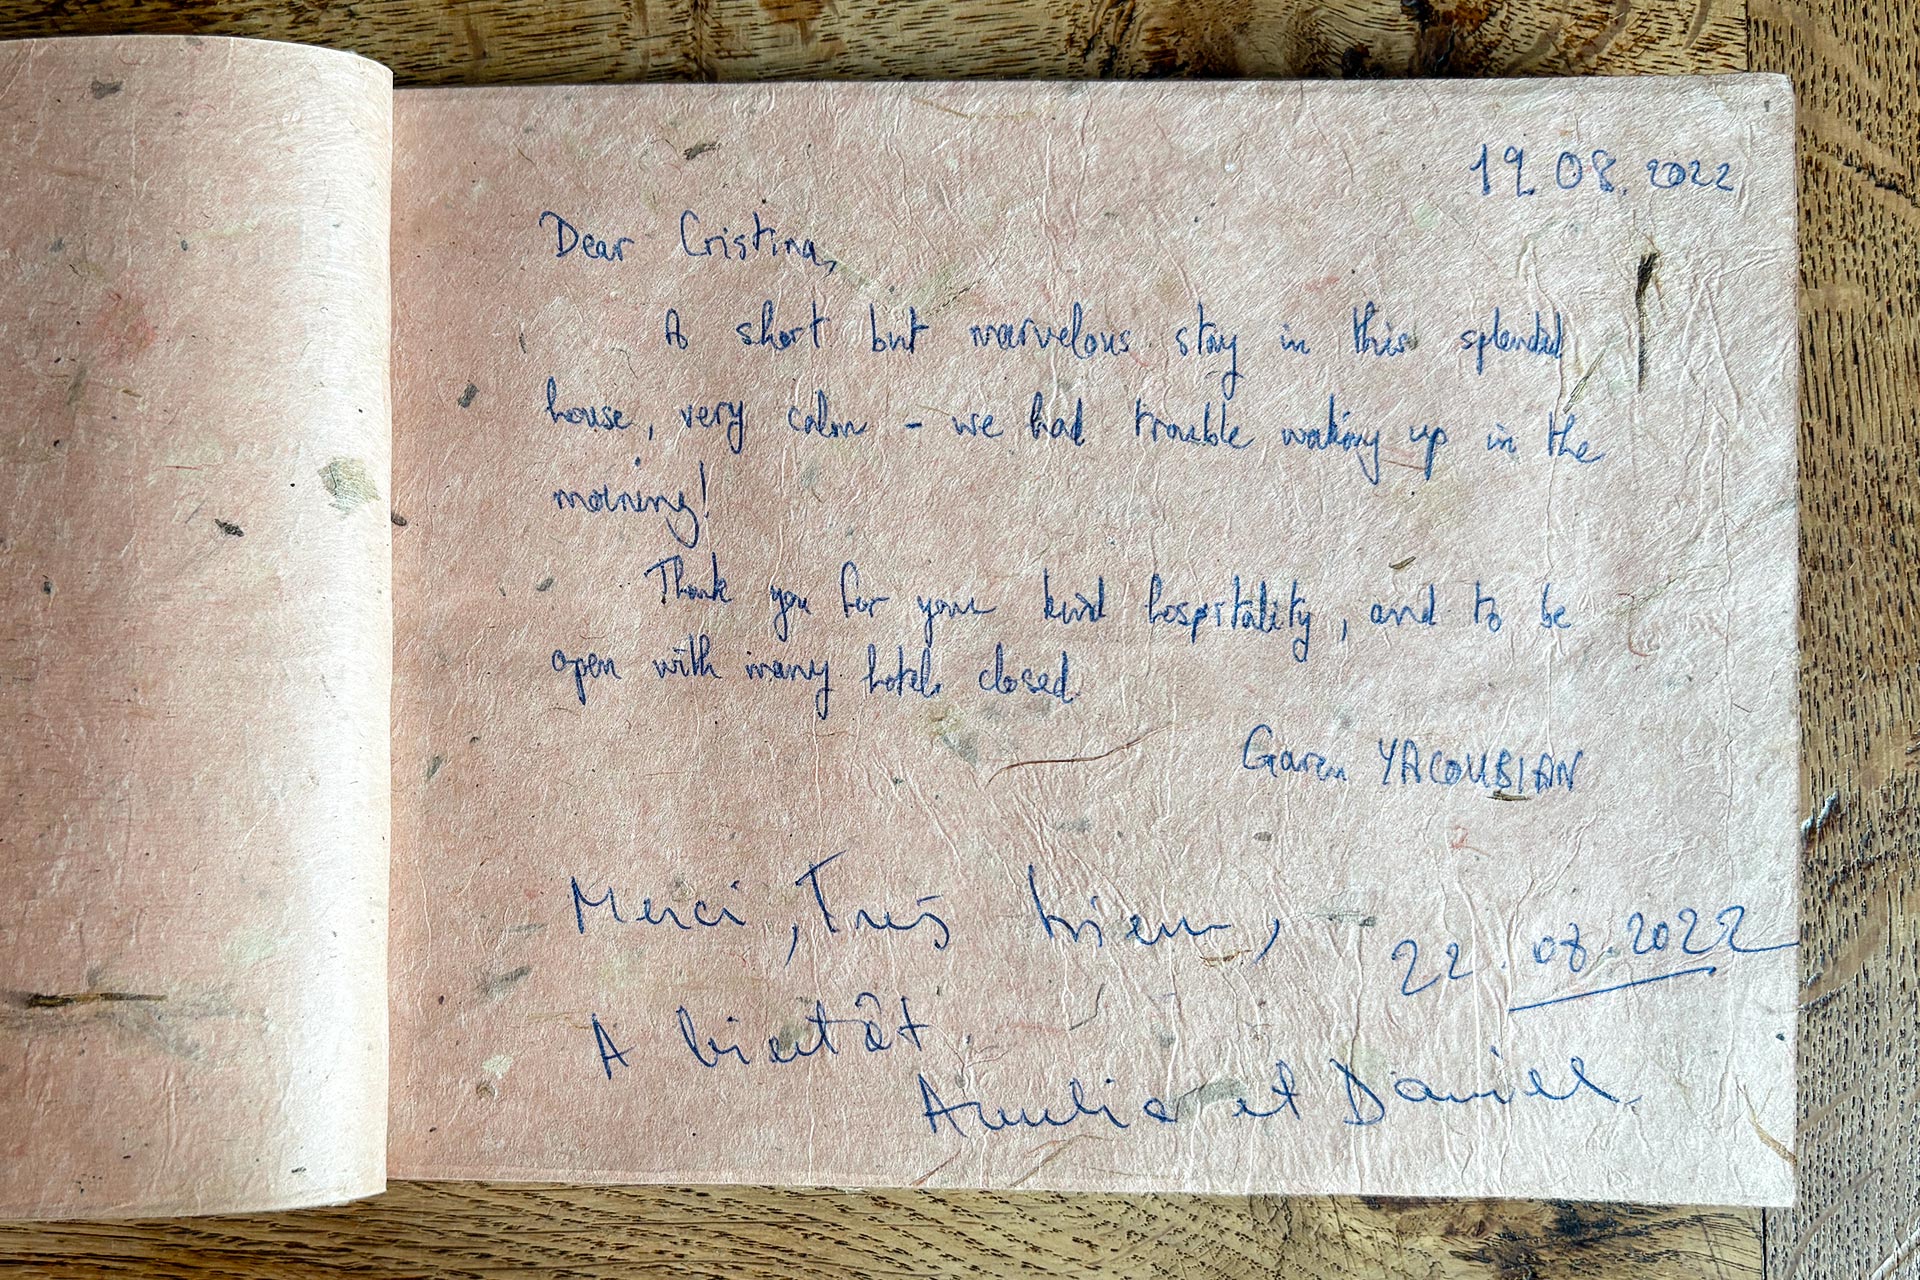 19.08.2022
Dear Cristina,
A short but marvelous stay in this splendid
house, very calm - we had trouble waking up in the
morning!
Thank you for your kind hospitality, and to be
open with many hotels closed.
Garen YACOUBIAN
Merci, Très bien,
22.08.2022
A bientôt.
et Daniel